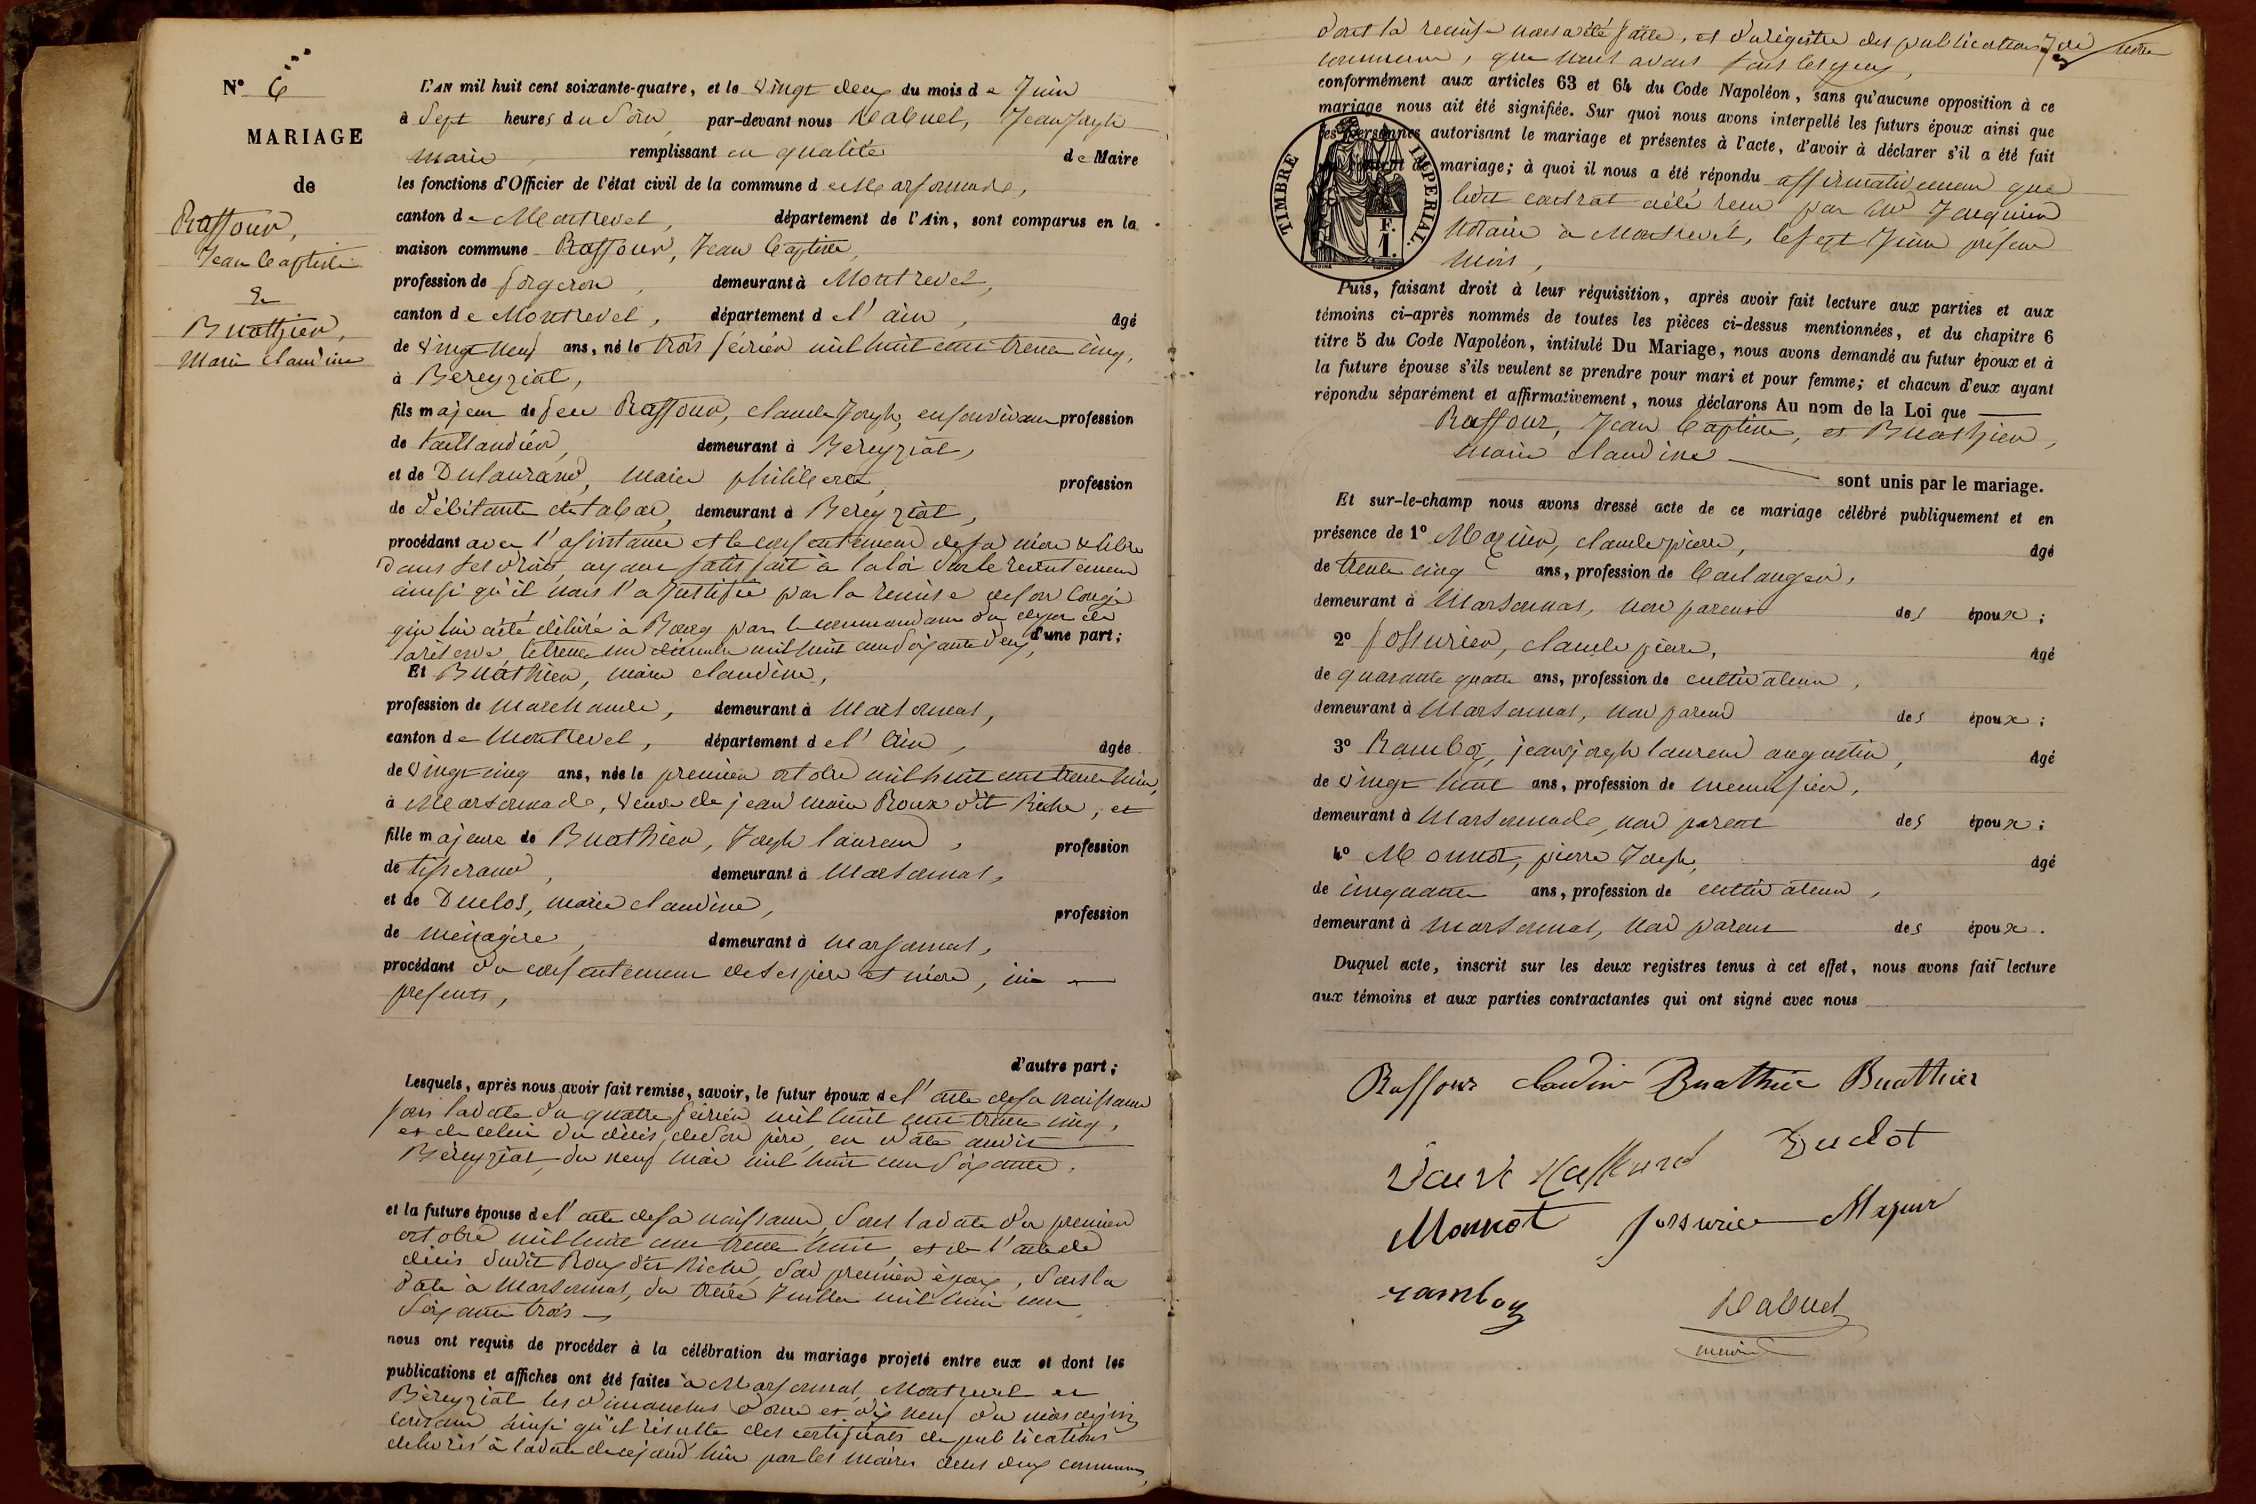 N° 6
MARIAGE
de
Raffour,
Jean Baptiste
&
Buathier,
Marie Claudine
L'AN mil huit cent soixante-quatre, et le vingt deux du mois de Juin
à Sept heures du Soir, par-devant nous Rabuel, Jean Joseph
Marie, remplissant en qualité de Maire
les fonctions d'Officier de l'état civil de la commune de Marsonnas,
canton de Montrevel, département de l'Ain, sont comparus en la
maison commune Raffour, Jean Baptiste,
profession de forgeron, demeurant à Montrevel,
canton de Montrevel, département de l'ain, âgé
de vingt neuf ans, né le trois février mil huit cent trente cinq,
à Béreyziat,
fils majeur de feu Raffour, claude Joseph, en son vivant profession
de taillandier, demeurant à Béreyziat,
et de Dulaurand, marie philiberte, profession
de débitante de tabac, demeurant à Béreyziat,
procédant avec l'assistance et le consentement de sa mère & libre
dans ses droits, ayant satisfait à la loi sur le recrutement
ainsi qu'il nous l'a justifié par la remise de son Congé
qui lui a été délivré à Bourg par le commandant du dépot de
la réserve, le trente un décembre mil huit cent soixante deux, d'une part;
Et Buathier, marie claudine,
profession de marchande, demeurant à Marsonnas,
canton de Montrevel, département de l'Ain, âgée
de vingt cinq ans, née le premier octobre mil huit cent trente huit,
à Marsonnas, veuve de jean marie Roux dit Riche, et
fille majeure de Buathier, Joseph laurent, profession
de tisserand, demeurant à Marsonnas,
et de Duclos, marie claudine, profession
de ménagère, demeurant à Marsonnas,
procédant du consentement de ses père et mère, ici
présents,
d'autre part;
Lesquels, après nous avoir fait remise, savoir, le futur époux de l'acte de sa naissance
sous la date du quatre février mil huit cent trente cinq,
et de celui du décès de son père, en date audit
Béreyziat, du neuf mai mil huit cent soixante,
et la future épouse de l'acte de sa naissance, sous la date du premier
octobre mil huit cent trente huit, et de l'acte de
décès dudit Roux dit Riche, son premier époux, sous la
date à Marsonnas, du treize Juillet mil huit cent
soixante trois
nous ont requis de procéder à la célébration du mariage projeté entre eux et dont les
publications et affiches ont été faites à Marsonnas, Montrevel et
Béreyziat les dimanches douze et dix neuf du mois de juin
courant ainsi qu'il résulte des certificats de publications
délivrés à la date de ce jourd'hui par les maires des deux communes,
dont la remise nous a été faite, et du régistre des publications de notre
commune, que nous avons sous les yeux,
conformément aux articles 63 et 64 du Code Napoléon, sans qu'aucune opposition à ce
mariage nous ait été signifiée. Sur quoi nous avons interpellé les futurs époux ainsi que
les personnes autorisant le mariage et présentes à l'acte, d'avoir à déclarer s'il a été fait
mariage; à quoi il nous a été répondu affirmativement que
ledit contrat a été reçu par Me Jacquier
Notaire à Montrevel, le sept Juin présent
mois,
TIMBRE IMPERIAL.
F.
1.
Puis, faisant droit à leur réquisition, après avoir fait lecture aux parties et aux
témoins ci-après nommés de toutes les pièces ci-dessus mentionnées, et du chapitre 6
titre 5 du Code Napoléon, intitulé Du Mariage, nous avons demandé au futur époux et à
la future épouse s'ils veulent se prendre pour mari et pour femme; et chacun d'eux ayant
répondu séparément et affirmativement, nous déclarons Au nom de la Loi que
Raffour, Jean Baptiste, et Buathier,
marie claudine
sont unis par le mariage.
Et sur-le-champ nous avons dressé acte de ce mariage célébré publiquement et en
présence de 1° Mazuir, claude pierre, âgé
de trente cinq ans, profession de boulanger,
demeurant à Marsonnas, non parent des époux;
2° Fossurier, claude pierre, âgé
de quarante quatre ans, profession de cultivateur,
demeurant à Marsonnas, non parent des époux;
3° Ramboz, jean joseph laurent augustin, âgé
de vingt huit ans, profession de menuisier,
demeurant à Marsonnas, non parent des époux;
4° Monnot, pierre Joseph, âgé
de cinquante ans, profession de cultivateur,
demeurant à Marsonnas, non parent des époux.
Duquel acte, inscrit sur les deux registres tenus à cet effet, nous avons fait lecture
aux témoins et aux parties contractantes qui ont signé avec nous
Raffour claudine Buathier Buathier
Duclot
Monnot
ramboz
Rabuel
maire